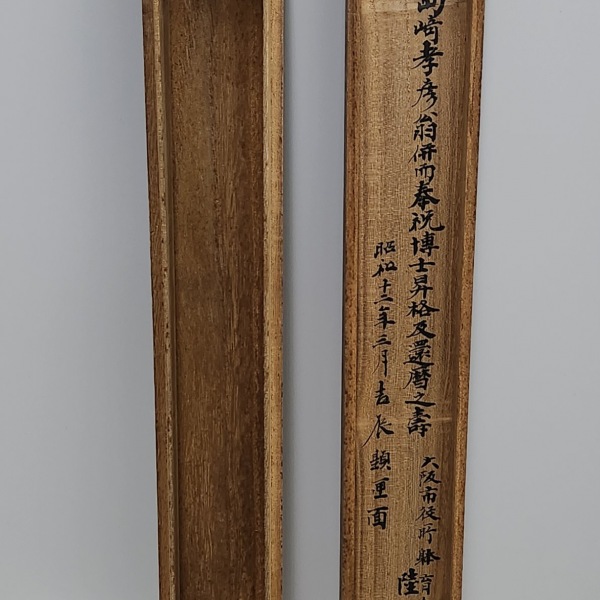 崎孝彦翁併而奉祝博士昇格及還暦之壽
昭和十二年三月吉辰題里面
大阪市役所 育
陸